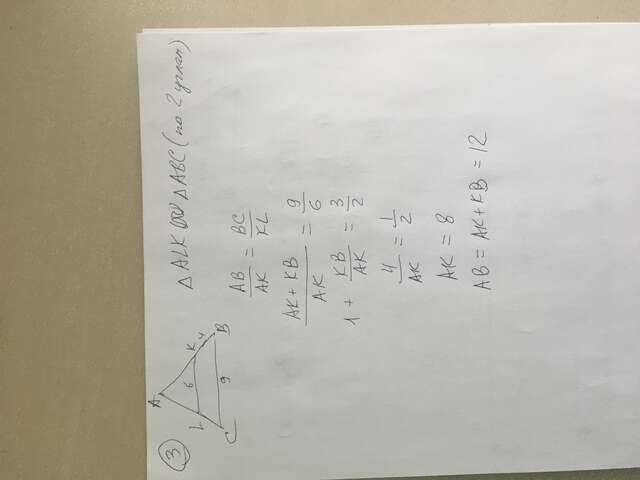 3
A
L
6
K
4
C
9
B
△ALK ∾ △ABC (по 2 углам)
AB/AK = BC/KL
AK + KB/AK = 9/6
1 + KB/AK = 3/2
4/AK = 1/2
AK = 8
AB = AK + KB = 12